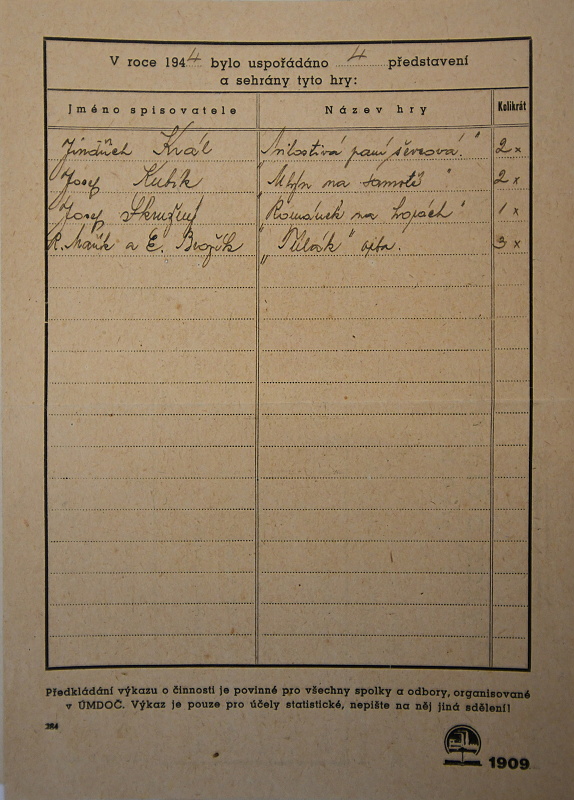 V roce 1944 bylo uspořádáno 4 představení
a sehrány tyto hry:
Jméno spisovatele Název hry Kolikrát
Jindřich Král „Milostivá paní ševcová." 2 x
Josef Kubík „Mlýn na samotě" 2 x
Josef Skružný „Románek na horách" 1 x
R. Mařík a E. Brožík „Tulák" opta. 3 x
Předkládání výkazu o činnosti je povinné pro všechny spolky a odbory, organisované
v ÚMDOČ. Výkaz je pouze pro účely statistické, nepište na něj jiná sdělení!
284
1909